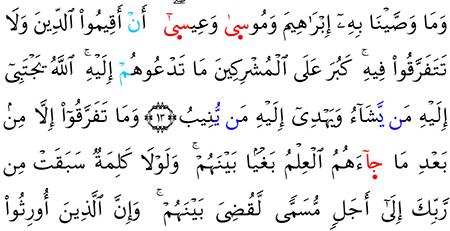 وَمَا وَصَّيْنَا بِهِۦٓ إِبْرَٰهِيمَ وَمُوسَىٰ وَعِيسَىٰٓ ۖ أَنْ أَقِيمُوا۟ ٱلدِّينَ وَلَا
تَتَفَرَّقُوا۟ فِيهِ ۚ كَبُرَ عَلَى ٱلْمُشْرِكِينَ مَا تَدْعُوهُمْ إِلَيْهِ ۚ ٱللَّهُ يَجْتَبِىٓ
إِلَيْهِ مَن يَّشَآءُ وَيَهْدِىٓ إِلَيْهِ مَن يُّنِيبُ ﴿١٣﴾ وَمَا تَفَرَّقُوٓا۟ إِلَّا مِنۢ
بَعْدِ مَا جَآءَهُمُ ٱلْعِلْمُ بَغْيًۢا بَيْنَهُمْ ۚ وَلَوْلَا كَلِمَةٌ سَبَقَتْ مِن
رَّبِّكَ إِلَىٰٓ أَجَلٍ مُّسَمًّى لَّقُضِىَ بَيْنَهُمْ ۚ وَإِنَّ ٱلَّذِينَ أُورِثُوا۟